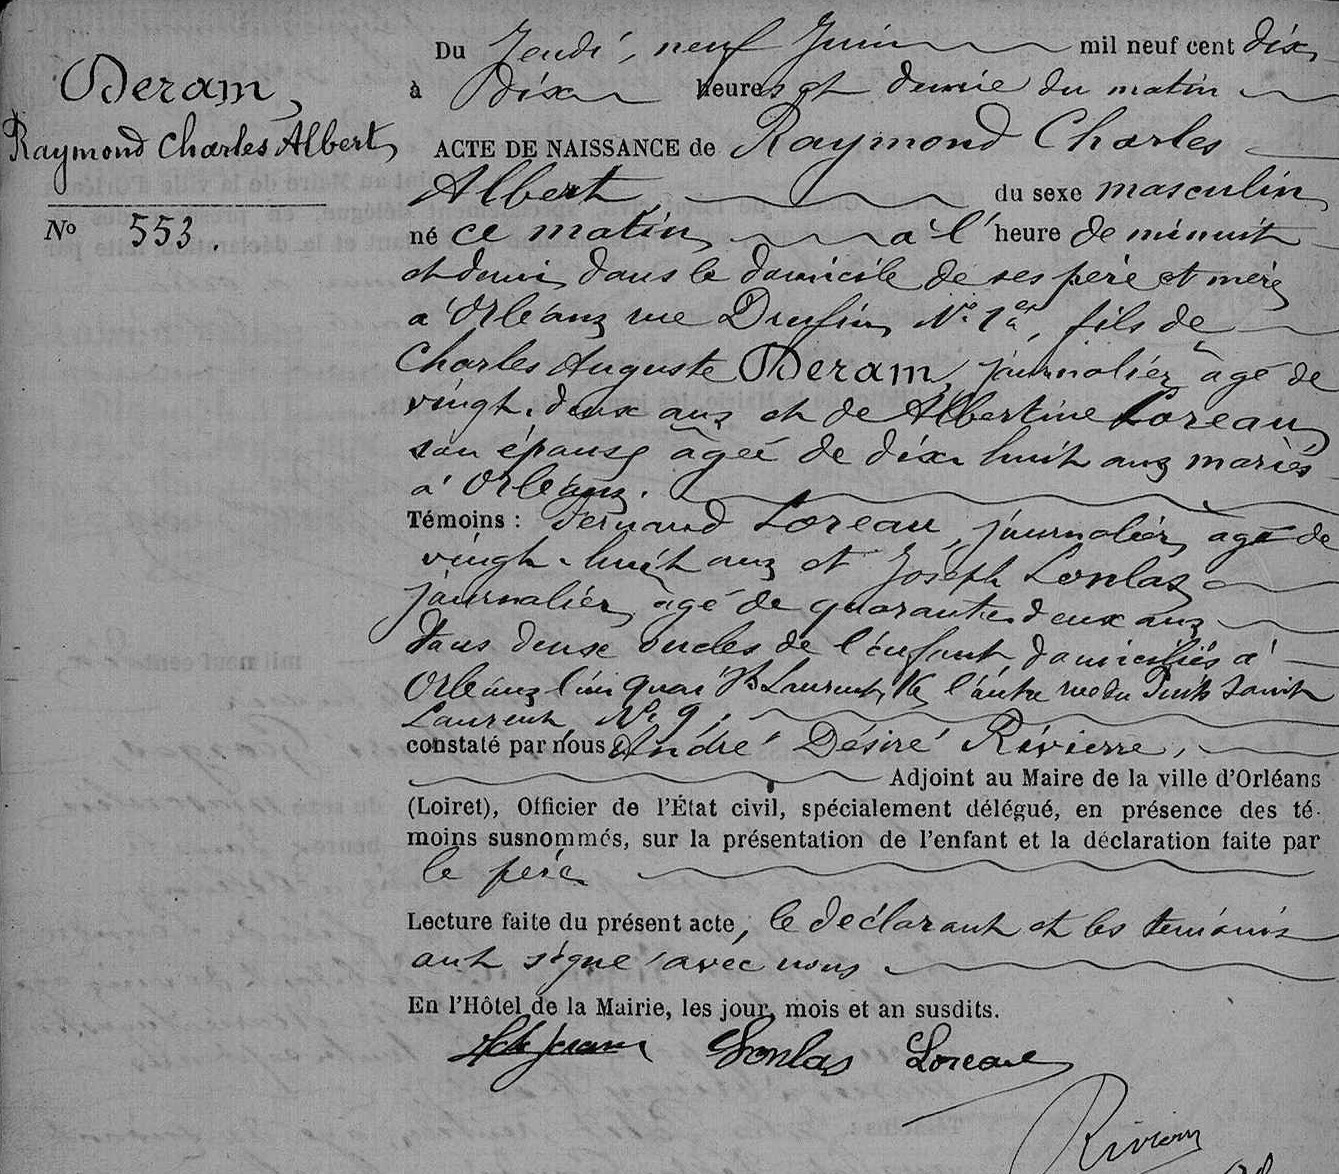 Deram,
Raymond Charles Albert,
No 553.
Du Jeudi, neuf Juin mil neuf cent dix,
à dix heures et demie du matin
ACTE DE NAISSANCE de Raymond Charles
Albert, du sexe masculin,
né ce matin, à l'heure de minuit
et demi, dans le domicile de ses père et mère
à Orléans rue N° 1er, fils de
Charles Auguste Deram, journalier, âgé de
vingt-deux ans et de Albertine Loreau,
son épouse âgée de dix huit ans mariés
à Orléans.
Témoins : Fernand Loreau, journalier, âgé de
vingt-huit ans et Joseph Lonlas
journalier, âgé de quarante deux ans
tous deux oncles de l'enfant, domiciliés à
Orléans l'un quai St Laurent, l'autre rue du Puits Saint
Laurent N° 9.
constaté par nous André Désiré Rivierre,
Adjoint au Maire de la ville d'Orléans
(Loiret), Officier de l'État civil, spécialement délégué, en présence des té-
moins susnommés, sur la présentation de l'enfant et la déclaration faite par
le père
Lecture faite du présent acte, le déclarant et les témoins
ont signé avec nous
En l'Hôtel de la Mairie, les jour, mois et an susdits.
Lonlas Loreau
Rivierre